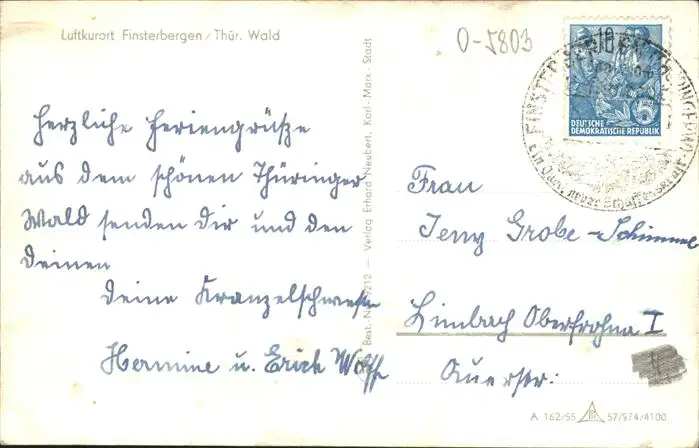 Luftkurort Finsterbergen / Thür. Wald
O-5803
10
DEUTSCHE
DEMOKRATISCHE REPUBLIK
Herzliche Feriengrüße
aus dem schönen Thüringer
Wald senden Dir und den
Deinen
Deine Kranzelschwester
Hermine u. Erich Wolff
Verlag Erhard Neubert, Karl-Marx-Stadt
Frau
Jeny Grobe-Schimmel
Limbach Oberfrohna I
Querstr:
A 162/55 57/974/4100